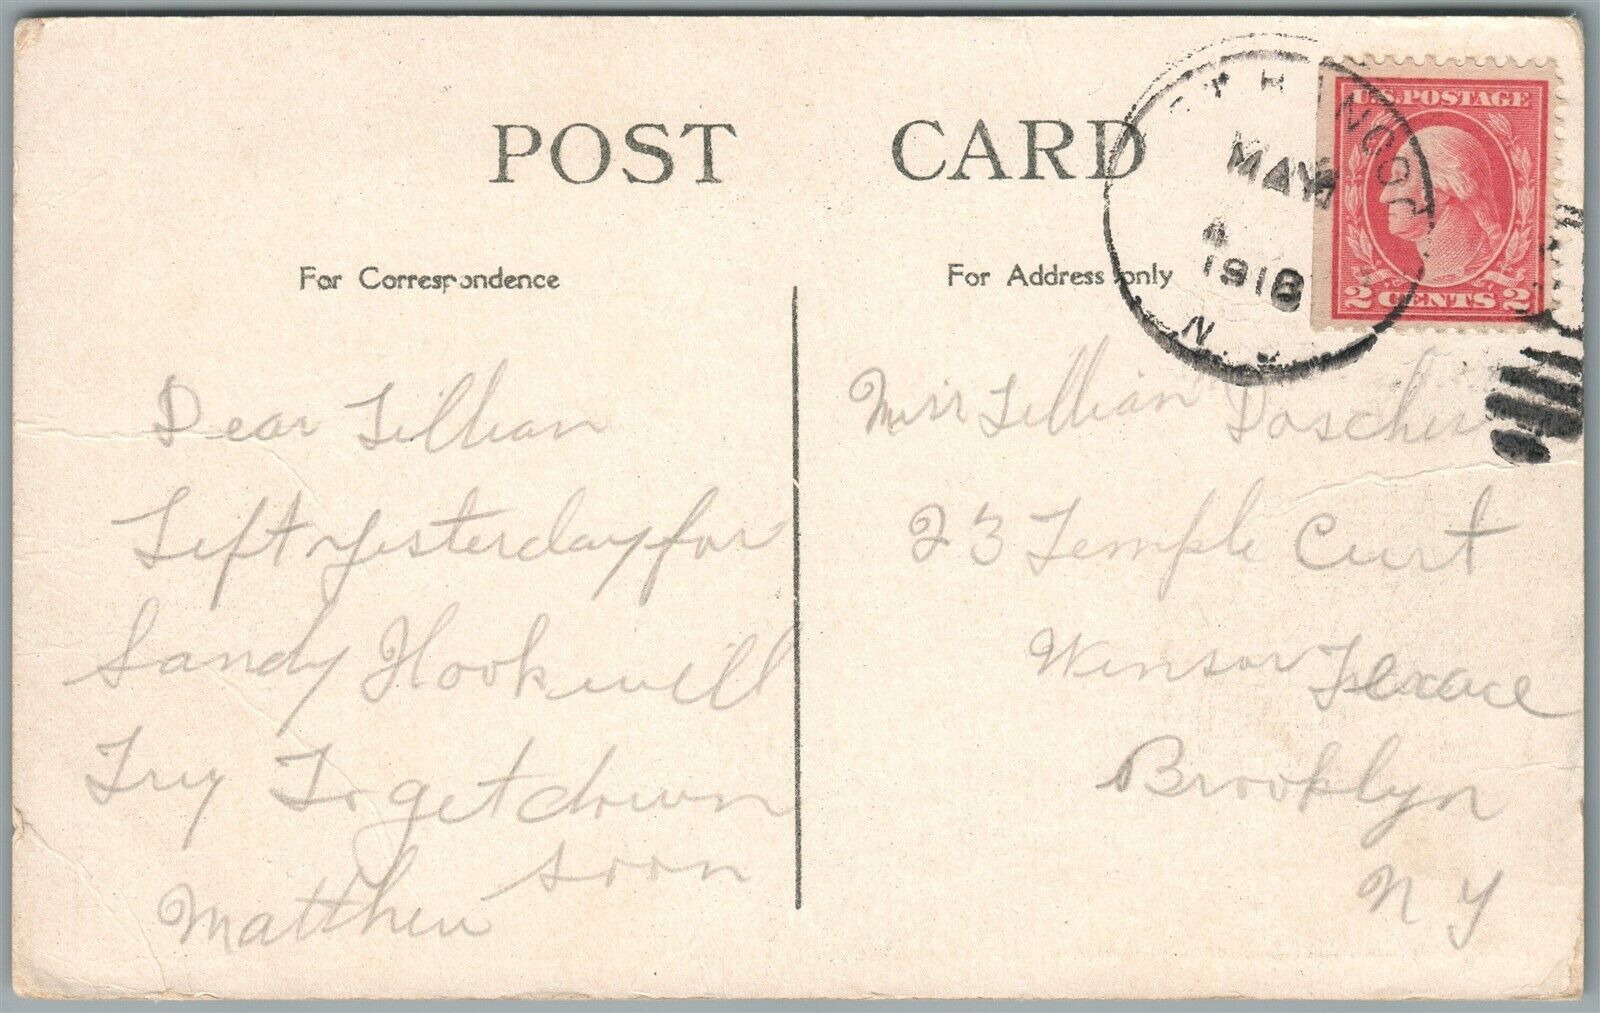 POST CARD
For Correspondence
For Address only
U.S. POSTAGE
2 CENTS 2
MAY
A
1918
N.Y.
Dear Lillian
Left yesterday for
Sandy Hook will
Try To get down
soon
Matthew
Miss Lillian Doscher
23 Temple Curt
Winsor Terrace
Brooklyn
N Y